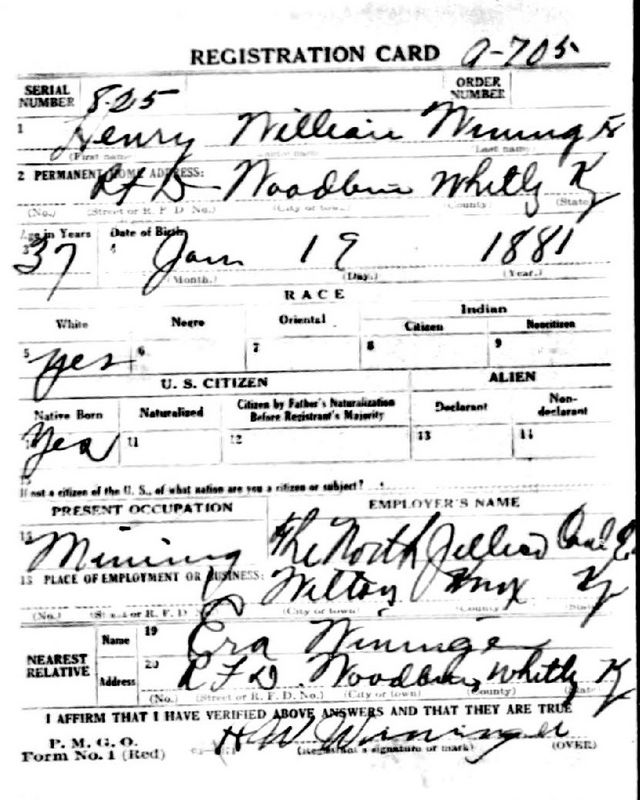 REGISTRATION CARD A-705
SERIAL NUMBER 825 ORDER NUMBER
1 Henry William Wininger
(First name) (Last name)
2 PERMANENT HOME ADDRESS: RFD Woodbine Whitly Ky
(No.) (Street or R. F. D. No.) (City or town) (County) (State)
Age in Years Date of Birth
3 37 4 Jan 19 1881
(Month.) (Day.) (Year.)
RACE
White Negro Oriental Indian
Citizen Noncitizen
5 yes 6 7 8 9
U. S. CITIZEN ALIEN
Native Born Naturalized Citizen by Father's Naturalization Before Registrant's Majority Declarant Non-declarant
Yes 11 12 13 14
15 If not a citizen of the U. S., of what nation are you a citizen or subject?
PRESENT OCCUPATION EMPLOYER'S NAME
Mining The North Jellico Coal Co
18 PLACE OF EMPLOYMENT OR BUSINESS: Wilton Knox Ky
(No.) (Street or R. F. D. (City or town) (County) State)
NEAREST RELATIVE Name 19 Era Wininger
Address 20 RFD Woodbine Whitly Ky
(No.) (Street or R. F. D. No.) (City or town) (County) State)
I AFFIRM THAT I HAVE VERIFIED ABOVE ANSWERS AND THAT THEY ARE TRUE
P. M. G. O.
Form No. 1 (Red) H W Wininger
(Registrant's signature or mark) (OVER)